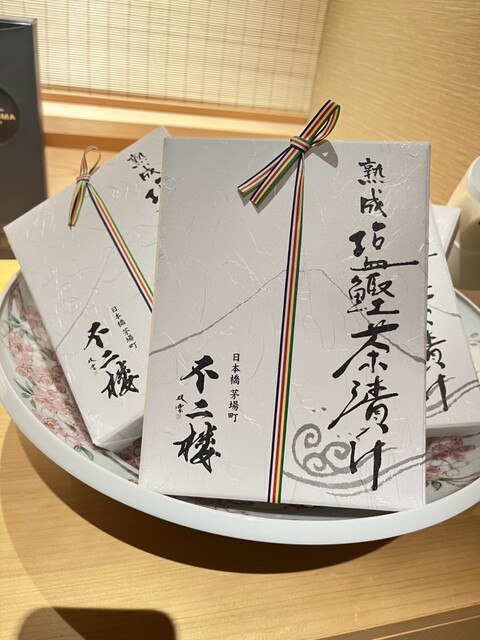 熟成 塩鰹茶漬け
日本橋 茅場町
不二楼
双雲
熟成
日本橋茅場町
不二楼
双雲
漬け
MA